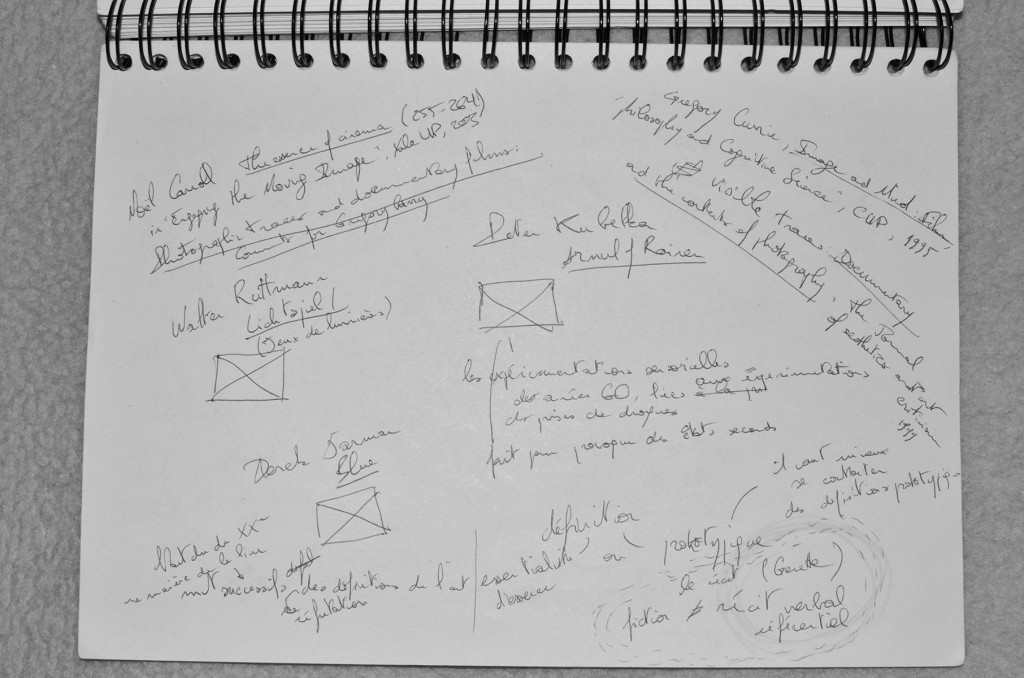 Noël Carroll The essence of cinema (255-264)
in "Engaging the Moving Image", Yale UP, 2003
Photographic traces and documentary films:
comments for Gregory
Gregory Currie, Image and Mind: Film,
philosophy and Cognitive Science", CUP, 1995
visible traces: Documentary
and the contents of photography, the Journal
of aesthetics and art
criticism
1999
Peter Kubelka
Arnulf Rainer
Walter Ruttmann
Lichtspiel
(Jeux de lumières)
les expérimentations sensorielles
des années 60, liées aux expérimentations
des prises de drogues
fait pour provoquer des États seconds
Derek Jarman
Blue
XXe
successifs des définitions de l'art
réfutation
définition
essentialiste ou prototypique
d'essence
il vaut mieux
se contenter
des définitions prototypiques
le récit (Genette)
fiction ≠ récit verbal
référentiel